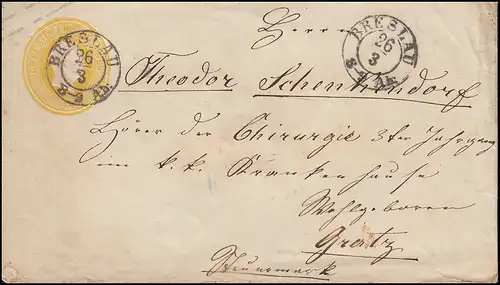 Herrn
BRESLAU
26
3
8-9 Ab.
BRESLAU
26
3
8-9 Ab.
Theodor Schenkendorf
Hörer der Chirurgie 3ter Jahrgang
im k. k. Krankenhause
Wohlgeboren
Gratz
Steuermark